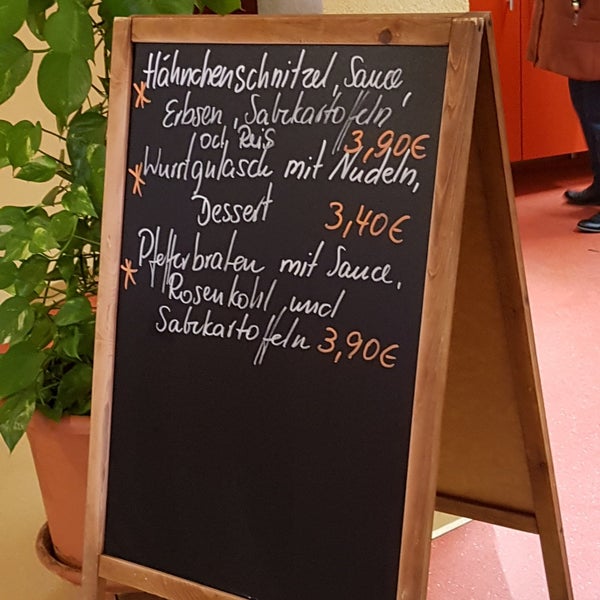 Hähnchenschnitzel, Sauce,
Erbsen, Salzkartoffeln
od. Reis 3,90€
Wurstgulasch mit Nudeln,
Dessert 3,40€
Pfefferbraten mit Sauce,
Rosenkohl und
Salzkartoffeln 3,90€